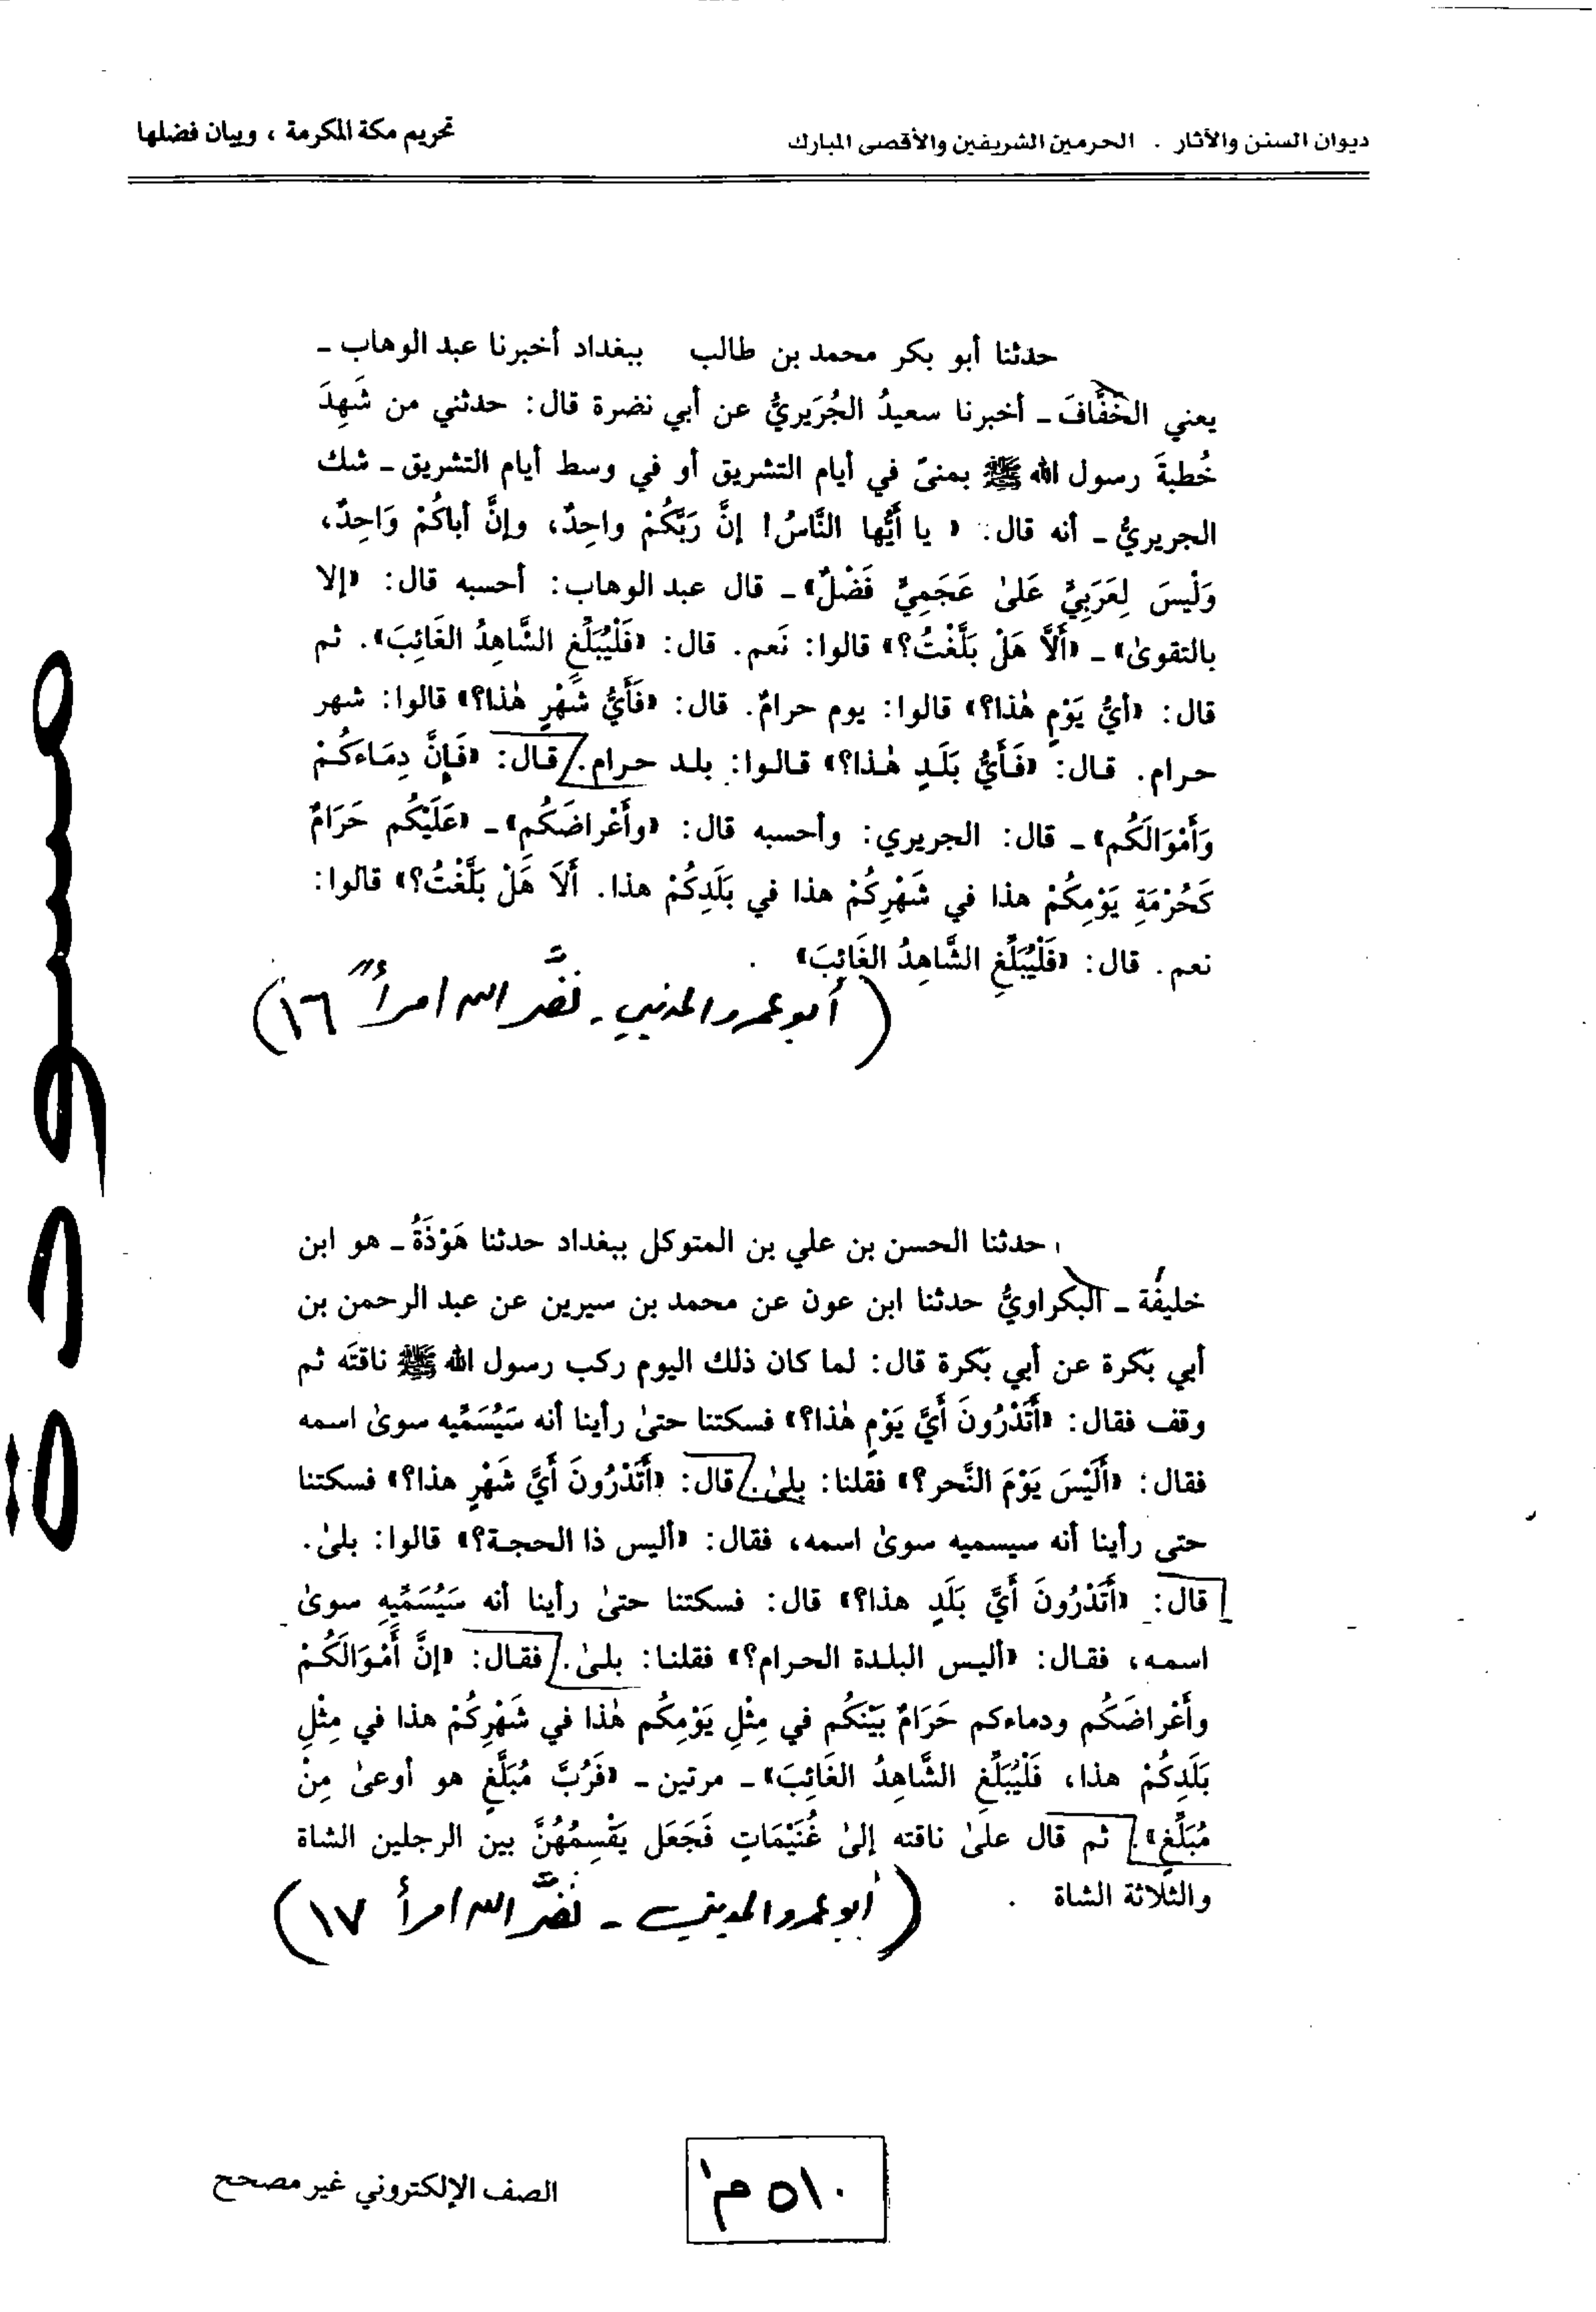 ديوان السنن والآثار . الحرمين الشريفين والأقصى المبارك
تحريم مكة المكرمة ، وبيان فضلها
حدثنا أبو بكر محمد بن طالب ببغداد أخبرنا عبد الوهاب -
يعني الخَفَّافَ - أخبرنا سعيدُ الجُرَيريُّ عن أبي نضرة قال: حدثني من شَهِدَ
خُطبةَ رسول الله ﷺ بمنىً في أيام التشريق أو في وسط أيام التشريق - شك
الجريريُّ - أنه قال: « يا أَيُّها النَّاسُ! إنَّ رَبَّكُمْ واحِدٌ، وإنَّ أباكُمْ وَاحِدٌ،
وَلَيْسَ لِعَرَبِيٍّ عَلىٰ عَجَمِيٍّ فَضْلٌ» - قال عبد الوهاب: أحسبه قال: «إلا
بالتقوىٰ» - «أَلاَّ هَلْ بَلَّغْتُ؟» قالوا: نَعم. قال: «فَلْيُبَلِّغِ الشَّاهِدُ الغَائِبَ». ثم
قال: «أيُّ يَوْمٍ هٰذا؟» قالوا: يوم حرامٌ. قال: «فَأَيُّ شَهْرٍ هٰذا؟» قالوا: شهر
حرام. قال: «فَأَيُّ بَلَدٍ هٰذا؟» قالوا: بلد حرام. قال: «فَإِنَّ دِمَاءَكُمْ
وَأَمْوَالَكُم» - قال: الجريري: وأحسبه قال: «وأَعْراضَكُم» - «عَلَيْكُم حَرَامٌ
كَحُرْمَةِ يَوْمِكُمْ هذا في شَهْرِكُمْ هذا في بَلَدِكُمْ هذا. أَلاَ هَلْ بَلَّغْتُ؟» قالوا:
نعم. قال: «فَلْيُبَلِّغِ الشَّاهِدُ الغَائِبَ» .
(أبو عمرو المديني - نضَّر الله امرأً ١٦)
حدثنا الحسن بن علي بن المتوكل ببغداد حدثنا هَوْذَةُ - هو ابن
خليفة - البكراويُّ حدثنا ابن عون عن محمد بن سيرين عن عبد الرحمن بن
أبي بَكرة عن أبي بَكرة قال: لما كان ذلك اليوم ركب رسول الله ﷺ ناقتَه ثم
وقف فقال: «أَتَدْرُونَ أَيَّ يَوْمٍ هٰذا؟» فسكتنا حتىٰ رأينا أنه سَيُسَمِّيه سوىٰ اسمه
فقال: «أَلَيْسَ يَوْمَ النَّحر؟» فقلنا: بلىٰ. قال: «أَتَدْرُونَ أَيَّ شَهْرٍ هذا؟» فسكتنا
حتى رأينا أنه سيسميه سوىٰ اسمه، فقال: «أليس ذا الحجة؟» قالوا: بلىٰ.
قال: «أَتَدْرُونَ أَيَّ بَلَدٍ هذا؟» قال: فسكتنا حتىٰ رأينا أنه سَيُسَمِّيهِ سوىٰ
اسمه، فقال: «أليس البلدة الحرام؟» فقلنا: بلىٰ. فقال: «إنَّ أَمْوَالَكُمْ
وأَعْراضَكُم ودماءكم حَرَامٌ بَيْنَكُم في مِثْلِ يَوْمِكُم هٰذا في شَهْرِكُمْ هذا في مِثْلِ
بَلَدِكُمْ هذا، فَلْيُبَلِّغِ الشَّاهِدُ الغَائِبَ» - مرتين - «فَرُبَّ مُبَلَّغٍ هو أوعىٰ مِنْ
مُبَلِّغٍ». ثم قال علىٰ ناقته إلىٰ غُنَيْمَاتٍ فَجَعَل يَقْسِمُهُنَّ بين الرجلين الشاة
والثلاثة الشاة .
(أبو عمرو المديني - نضَّر الله امرأ ١٧)
مسودة
٥١٠م١
الصف الإلكتروني غير مصحح